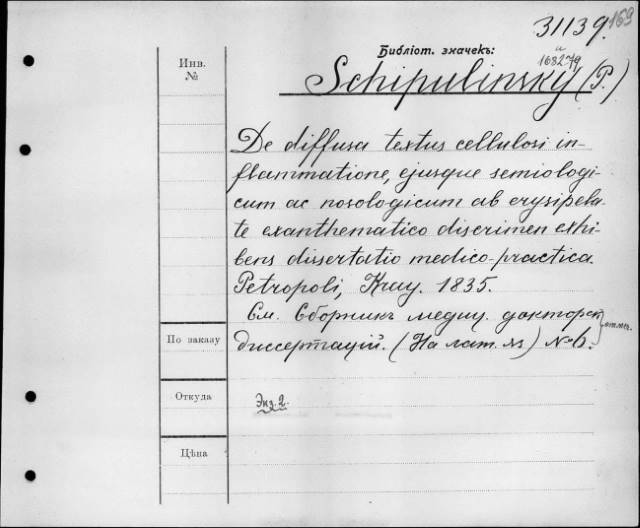 169
31139
и
168279
Инв.
№
Библіот. значекъ:
Schipulinsky (P.)
De diffusa textus cellulosi in-
flammatione, ejusque semiologi-
cum ac nosologicum ab erysipela-
te exanthematico discrimen exhi-
bens dissertatio medico-practica.
Petropoli, Kray. 1835.
См. Сборникъ медиц. докторск.
диссертацій. (На лат. яз) №6.
По заказу
Откуда
Экз. 2.
Цѣна